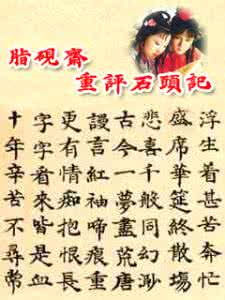 脂硯齋
重評石頭記
浮生着甚苦奔忙
盛席華筵終散塲
悲喜千般同幻渺
古今一夢盡荒唐
謾言紅袖啼痕重
更有情痴抱恨長
字字看來皆是血
十年辛苦不尋常